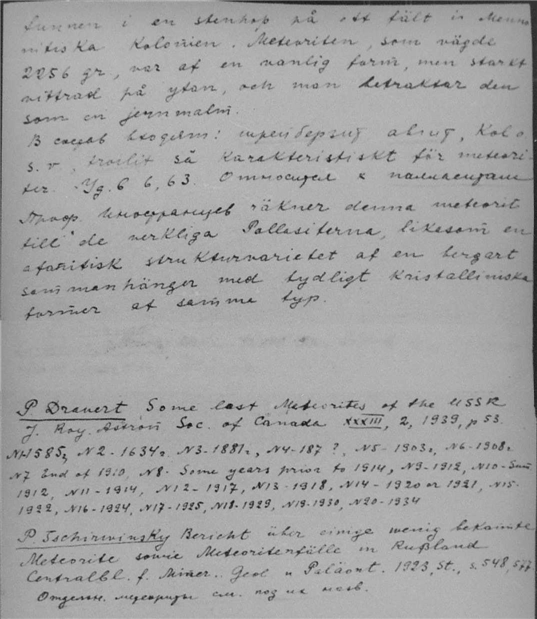 funnen i en stenhop på ett fält i Menno
nitiska Kolonien. Meteoriten, som vägde
2256 gr, var af en vanlig form, men starkt
vittrad på ytan, och man betraktar den
som en jernmalm.
В состав входят: шрейберзит, Kolo
s. v, troilit så karakteristiskt för meteori-
ter. Уд. в 6,63. Относится к палласитам
Проф. Иностранцев räkner denna meteorit
till de verkliga Pallasiterna, likesom en
afanitisk strukturvarietet af en bergart
sammanhänger med tydligt kristalliniska
former af samma typ.
P Dravert Some last Meteorites of the USSR
J. Roy. Astron Soc. of Canada XXXIII, 2, 1939, p 53.
N1-1585, N2-1634г. N3-1881г, N4-187?, N5-1903г, N6-1908г
N7 End of 1910, N8. Some years prior to 1914, N9-1912, N10-Sum
1912, N11-1914, N12-1917, N13-1918, N14-1920 or 1921, N15-
1922, N16-1924, N17-1925, N18-1929, N19-1930, N20-1934
P. Tschirwinsky Bericht über einige wenig bekannte
Meteorite sowie Meteoritenfälle in Rußland
Centralbl. f. Miner. Geol u Paläont. 1923, St., s. 548, 577
Отдельн. метеориты см. под их назв.